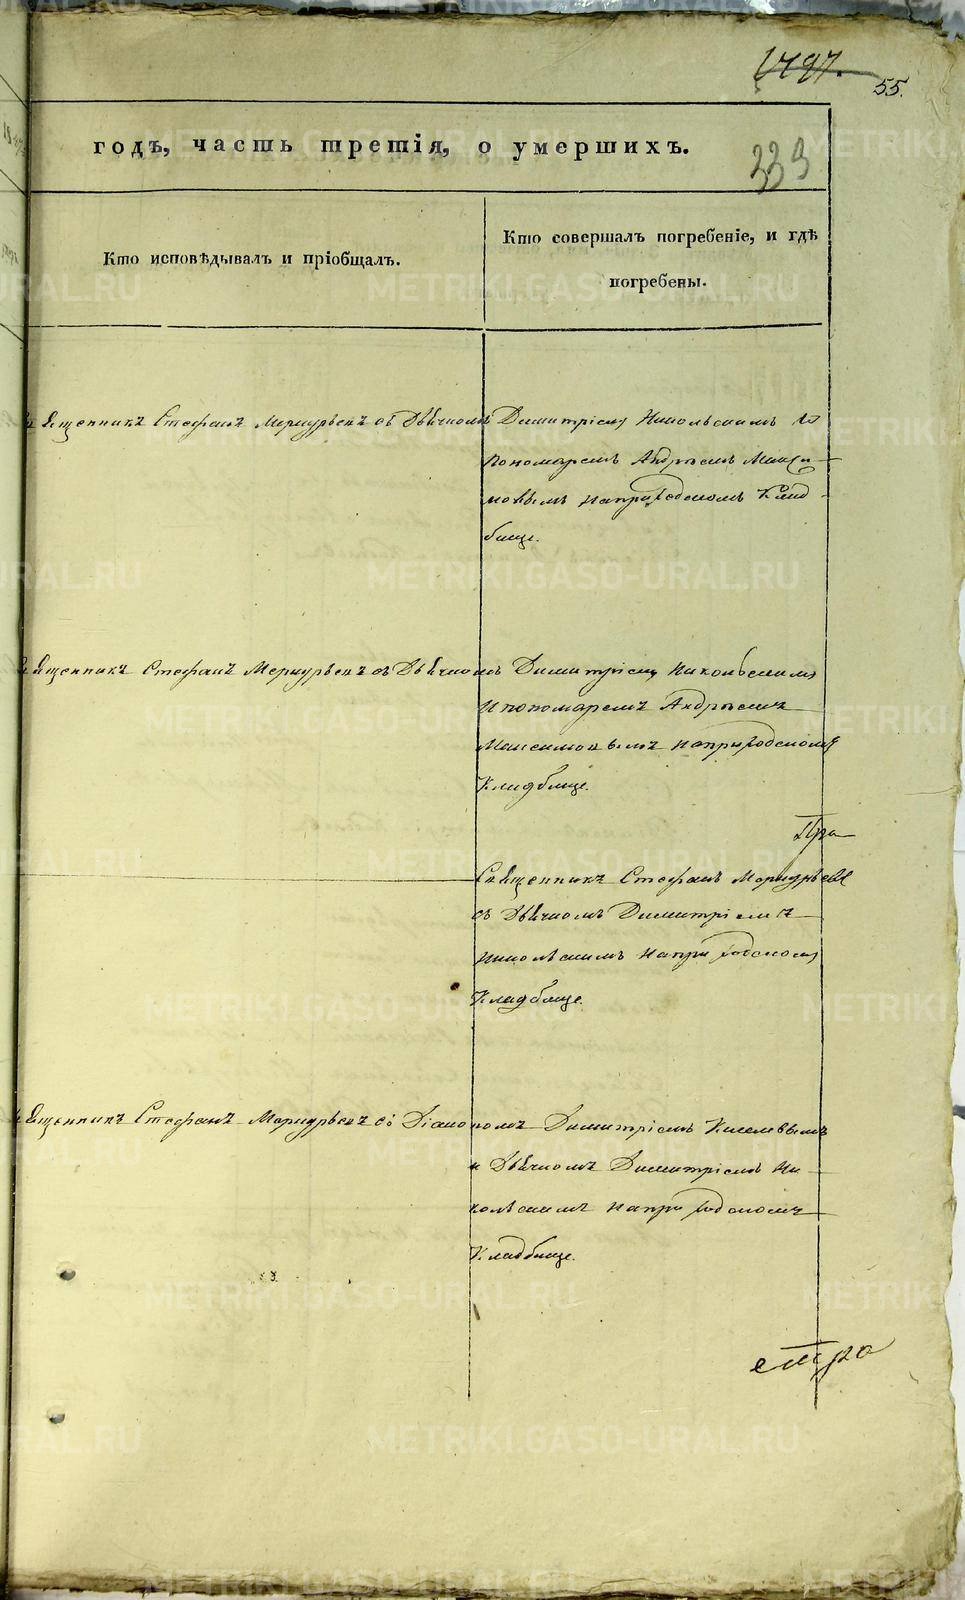 1497.
55.
годъ, часть третія, о умершихъ.
339
Кто исповѣдывалъ и пріобщалъ.
Кто совершалъ погребеніе, и гдѣ
погребены.
Священникъ Стефанъ Меркурьевъ съ Дьячкомъ Димитріемъ Никольскимъ и
Пономаремъ Андреемъ Макси-
мовымъ на приходскомъ Клад-
бище.
Священникъ Стефанъ Меркурьевъ съ Дьячкомъ Димитріемъ Никольскимъ
и пономаремъ Андреемъ
Максимовымъ на приходскомъ
Кладбище.
Священникъ Стефанъ Меркурьевъ
съ Дьячкомъ Димитріемъ
Никольскимъ на приходскомъ
Кладбище.
Священникъ Стефанъ Меркурьевъ съ Діакономъ Димитріемъ Киселевымъ
и Дьячкомъ Димитріемъ Ни-
кольскимъ на приходскомъ
Кладбище.
METRIKI.GASO-URAL.RU